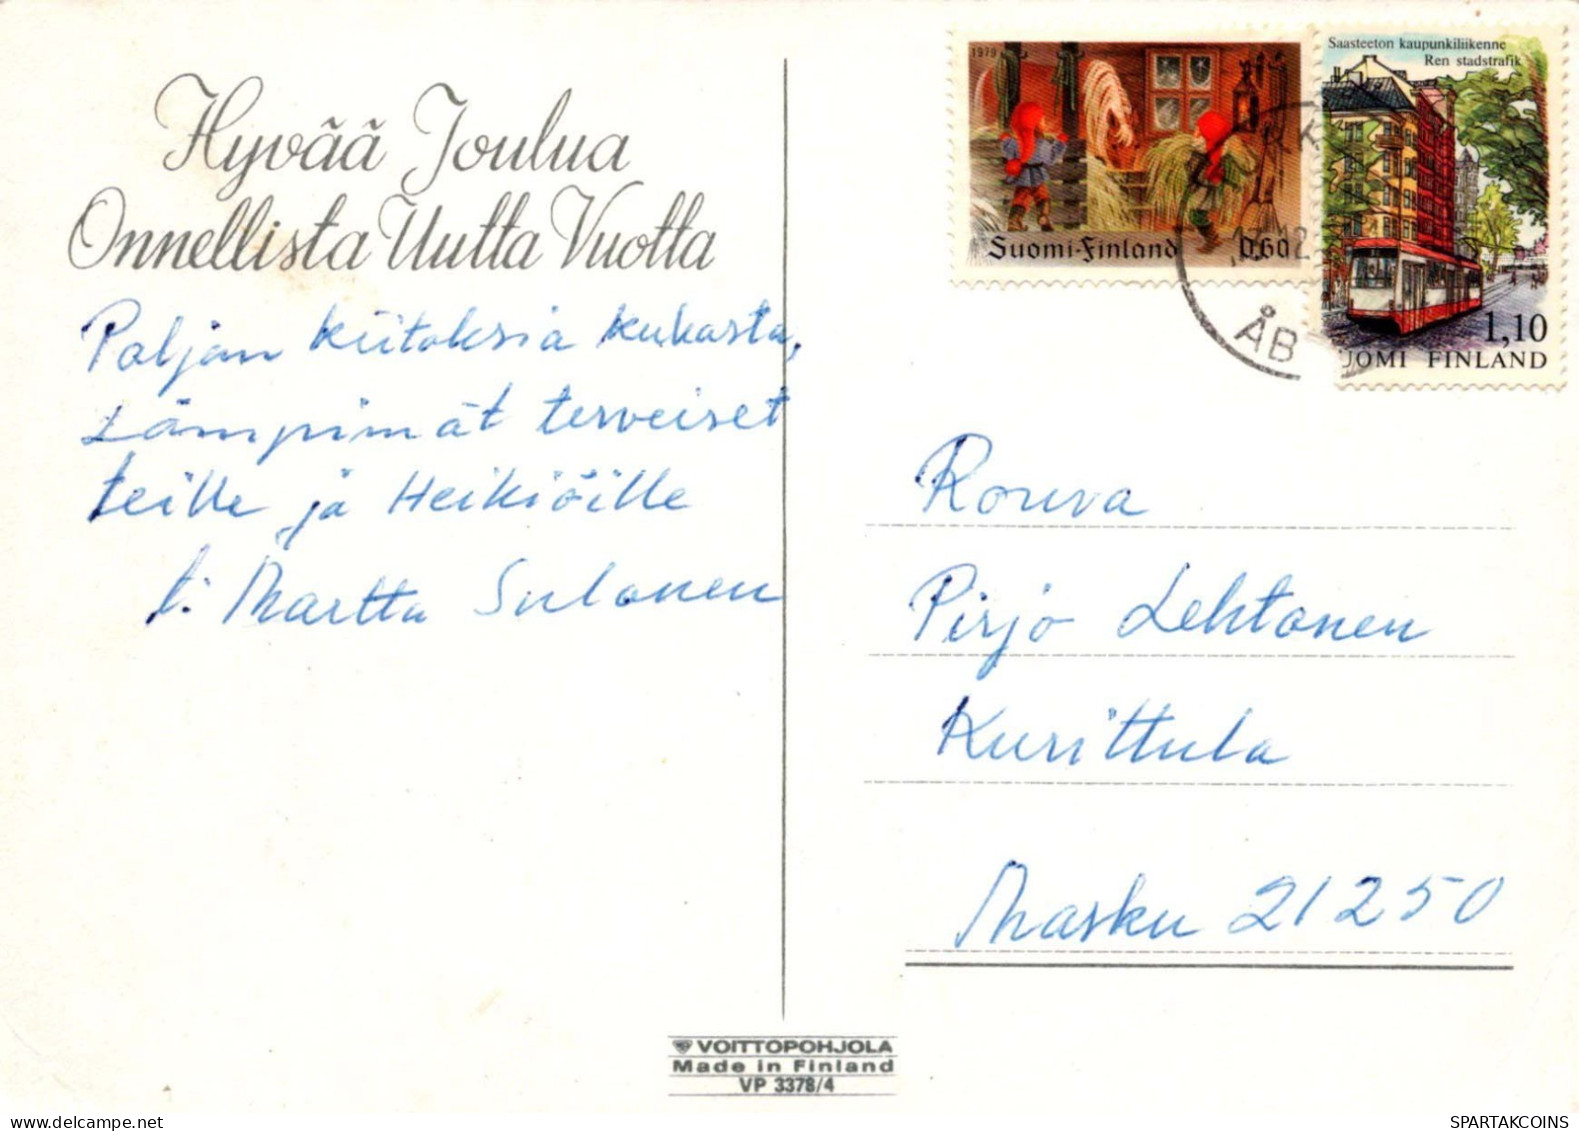 Hyvää Joulua
Onnellista Uutta Vuotta
Paljon kiitoksia kukasta,
Lämpimät terveiset
teille ja Heikiöille
t: Martta Sulonen
1979
Suomi-Finland 0.60
Saasteeton kaupunkiliikenne
Ren stadstrafik
1,10
UOMI FINLAND
ÅB
Rouva
Pirjo Lehtonen
Kurittula
Masku 21250
VOITTOPOHJOLA
Made in Finland
VP 3378/4
SPARTAKCOINS